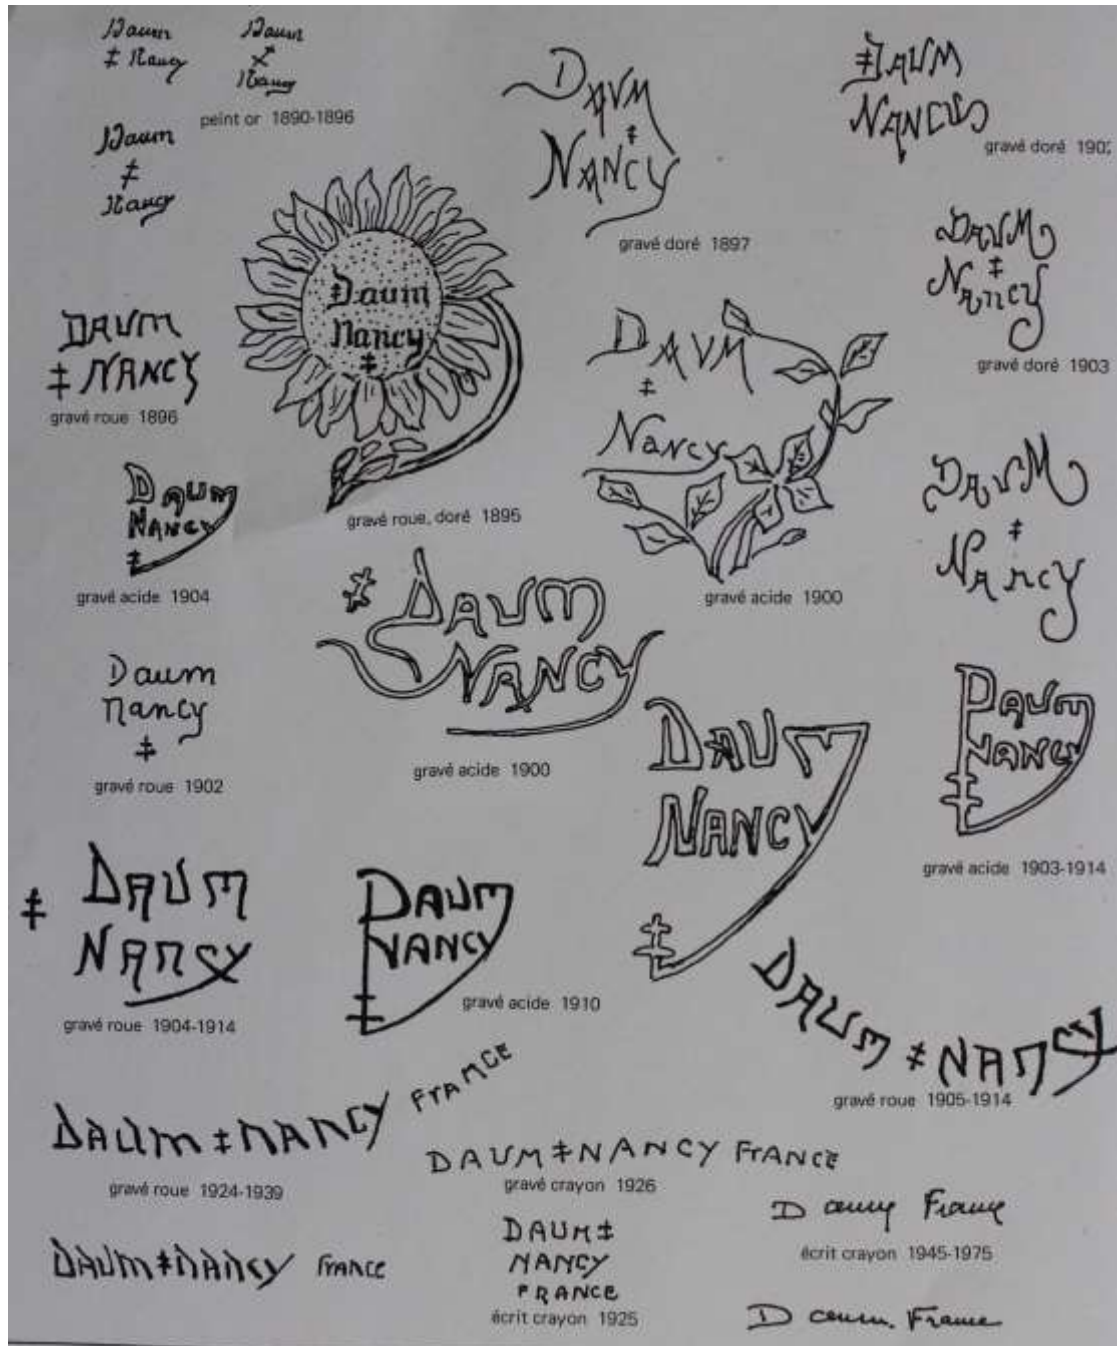 Daum
‡ Nancy
Daum
‡
Nancy
peint or 1890-1896
Daum
‡
Nancy
DAUM
‡
NANCY
gravé doré 1897
‡DAUM
NANCY
gravé doré 190
‡Daum
Nancy
‡
gravé roue, doré 1895
DAUM
‡
Nancy
gravé doré 1903
DAUM
‡ NANCY
gravé roue 1896
DAUM
‡
Nancy
gravé acide 1900
DAUM
NANCY
‡
gravé acide 1904
DAUM
‡
Nancy
‡ DAUM
NANCY
gravé acide 1900
Daum
Nancy
‡
gravé roue 1902
DAUM
NANCY
‡
DAUM
NANCY
‡
gravé acide 1903-1914
‡ DAUM
NANCY
gravé roue 1904-1914
DAUM
NANCY
‡
gravé acide 1910
DAUM ‡ NANCY
gravé roue 1905-1914
DAUM ‡ NANCY FRANCE
gravé roue 1924-1939
DAUM ‡ NANCY FRANCE
gravé crayon 1926
DAUM ‡ NANCY FRANCE
DAUM ‡
NANCY
FRANCE
écrit crayon 1925
Daum France
écrit crayon 1945-1975
Daum France